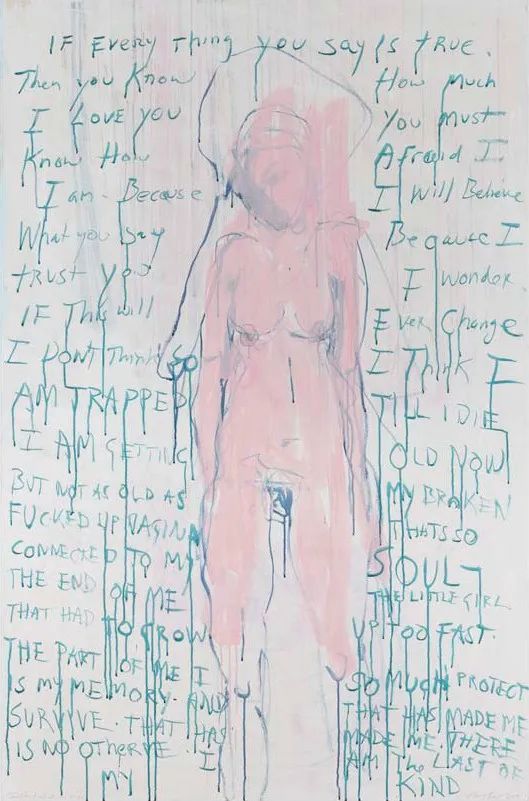 IF Every Thing you say is true.
Then you Know How much
I Love you you must
Know How Afraid I
I am. Because I will Believe
What you say Because I
trust you I wonder.
IF This will Ever Change
I DONT Think so I Think I
AM TRAPPED TILL I DIE
I AM GETTING OLD NOW
BUT NOT AS OLD AS MY BRAKEN
FUCKED UP VAGINA THATS SO
CONNECTED TO MY SOUL
THE END OF ME THE LITTLE GIRL
THAT HAD TO GROW UP TOO FAST.
THE PART OF ME I SO MUCH PROTECT
IS MY MEMORY. AND THAT HAS MADE ME
SURVIVE. THAT HAS MADE ME. THERE
IS NO OTHER I AM The LAST OF
MY KIND